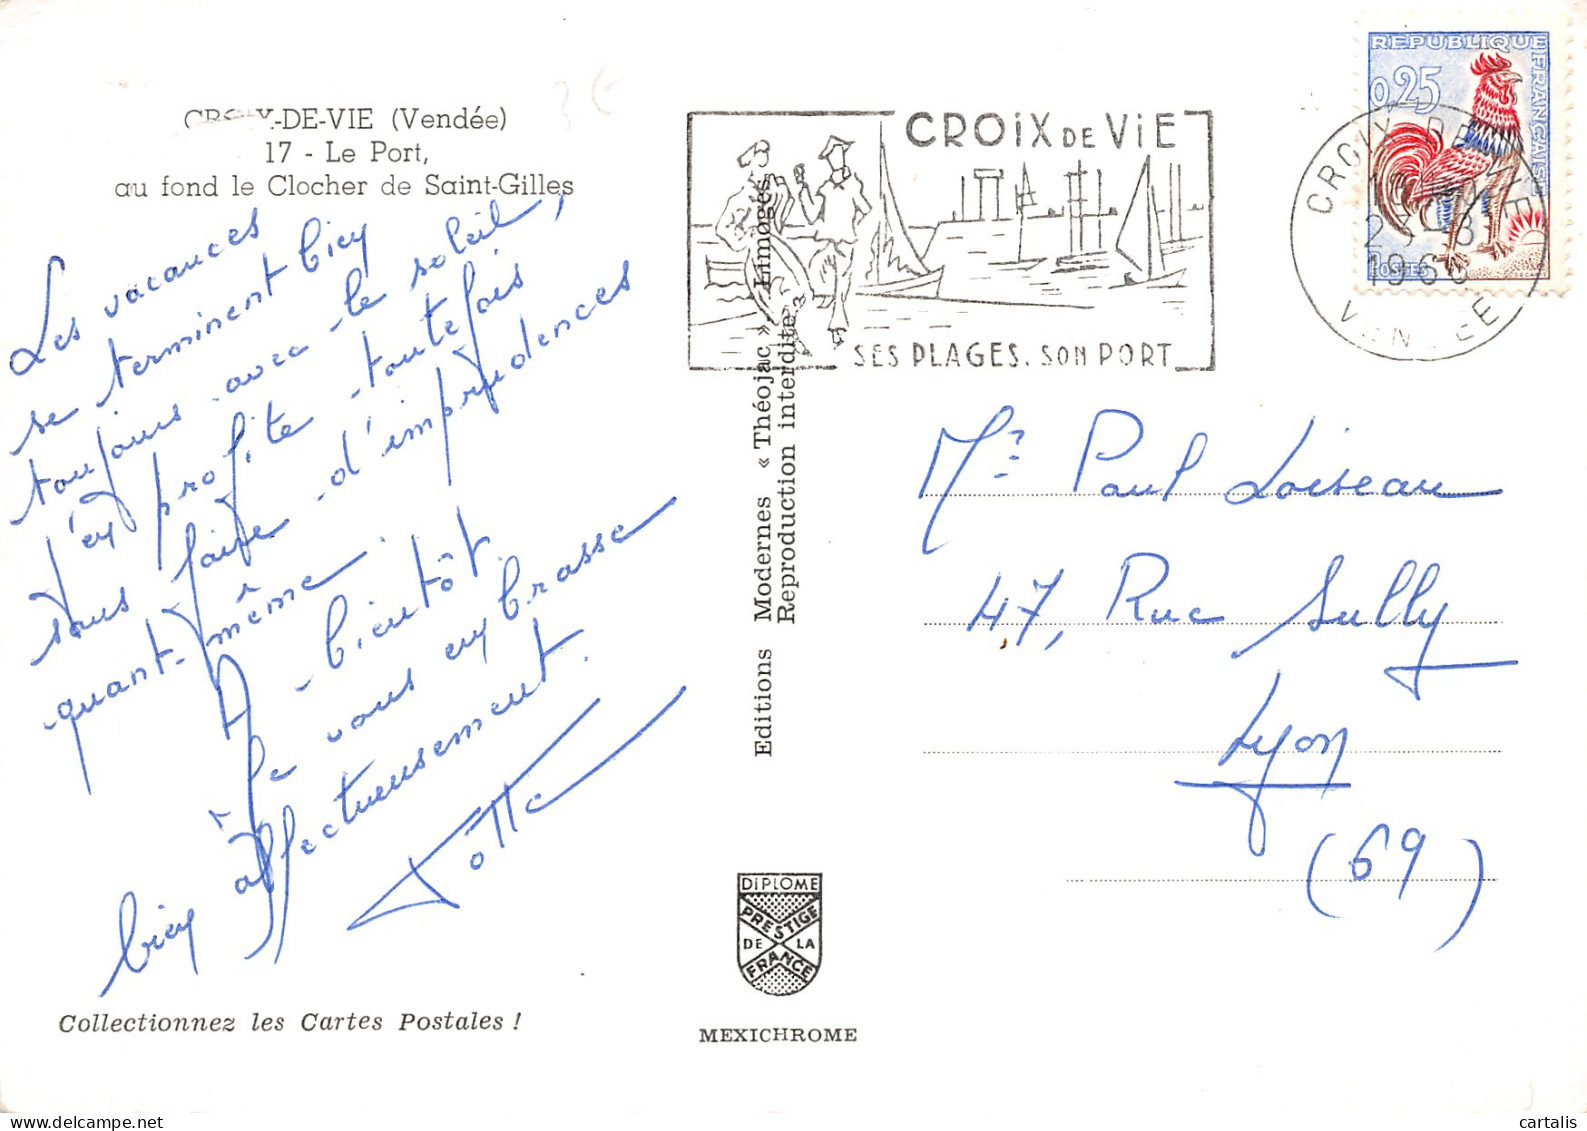 CROIX-DE-VIE (Vendée)
17 - Le Port,
au fond le Clocher de Saint-Gilles
Les vacances
se terminent bien
toujours avec le soleil,
j'en profite toutefois
sans faire d'imprudences
quant-même.
A bientôt.
Je vous embrasse
bien affectueusement.
Collectionnez les Cartes Postales !
Editions Modernes « Théojac » Limoges
Reproduction interdite
DIPLOME
PRESTIGE
DE LA
FRANCE
MEXICHROME
CROiX DE ViE
SES PLAGES. SON PORT
REPUBLIQUE FRANÇAISE
0,25
POSTES
CROIX DE VIE
196
VENDEE
Mr Paul Loiseau
47, Rue Sully
Lyon
(69)
cartalis